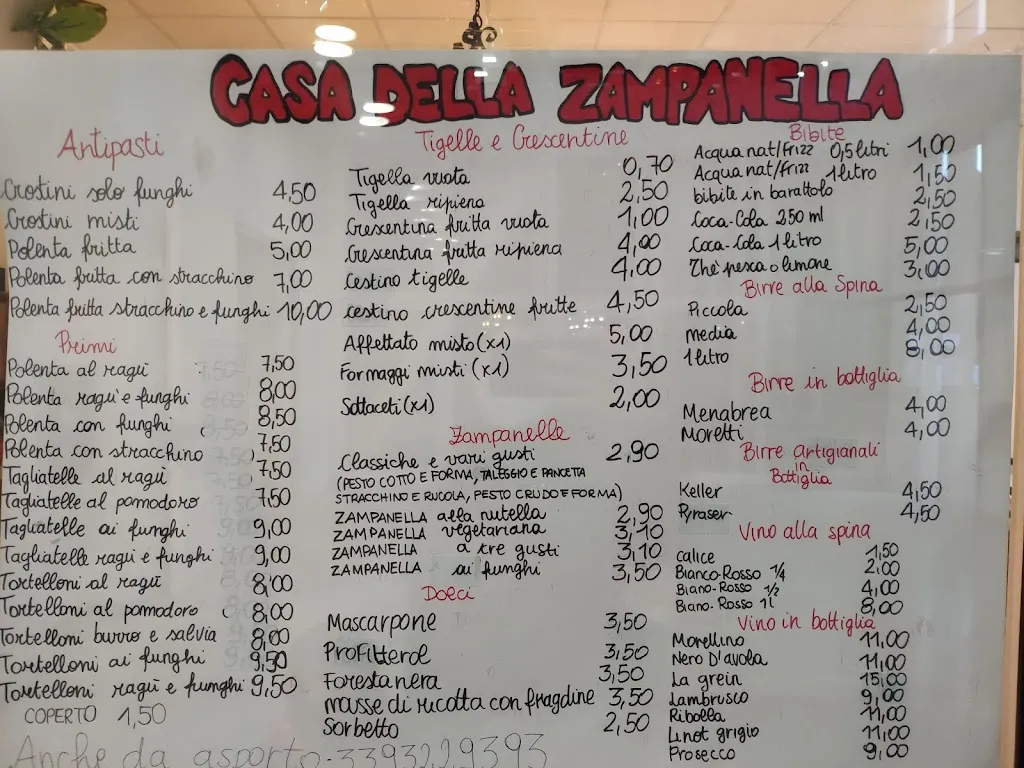 CASA DELLA ZAMPANELLA
Antipasti
Crostini solo funghi 4,50
Crostini misti 4,00
Polenta fritta 5,00
Polenta fritta con stracchino 7,00
Polenta fritta stracchino e funghi 10,00
Primi
Polenta al ragù 7,50
Polenta ragù e funghi 8,00
Polenta con funghi 8,50
Polenta con stracchino 7,50
Tagliatelle al ragù 7,50
Tagliatelle al pomodoro 7,50
Tagliatelle ai funghi 9,00
Tagliatelle ragù e funghi 9,00
Tortelloni al ragù 8,00
Tortelloni al pomodoro 8,00
Tortelloni burro e salvia 8,00
Tortelloni ai funghi 9,50
Tortelloni ragù e funghi 9,50
COPERTO 1,50
Anche da asporto - 3393229393
Tigelle e Crescentine
Tigella vuota 0,70
Tigella ripiena 2,50
Crescentina fritta vuota 1,00
Crescentina fritta ripiena 4,00
Cestino tigelle 4,00
cestino crescentine fritte 4,50
Affettato misto (x1) 5,00
Formaggi misti (x1) 3,50
Sottaceti (x1) 2,00
Zampanelle
Classiche e vari gusti 2,90
(PESTO COTTO E FORMA, TALEGGIO E PANCETTA
STRACCHINO E RUCOLA, PESTO CRUDO E FORMA)
ZAMPANELLA alla nutella 2,90
ZAMPANELLA vegetariana 3,10
ZAMPANELLA a tre gusti 3,10
ZAMPANELLA ai funghi 3,50
Dolci
Mascarpone 3,50
Profitterol 3,50
Foresta nera 3,50
masse di ricotta con fragoline 3,50
Sorbetto 2,50
Bibite
Acqua nat/frizz 0,5 litri 1,00
Acqua nat/frizz 1 litro 1,50
bibite in barattolo 2,50
Coca-Cola 250 ml 2,50
Coca-Cola 1 litro 5,00
Thè pesca o limone 3,00
Birre alla Spina
Piccola 2,50
media 4,00
1 litro 8,00
Birre in bottiglia
Menabrea 4,00
Moretti 4,00
Birre Artigianali
in
Bottiglia
Keller 4,50
Pyraser 4,50
Vino alla spina
calice 1,50
Bianco-Rosso 1/4 2,00
Biano-Rosso 1/2 4,00
Biano-Rosso 1 l 8,00
Vino in bottiglia
Morellino 11,00
Nero D'avola 11,00
La grein 15,00
Lambrusco 9,00
Ribolla 11,00
Linot grigio 11,00
Prosecco 9,00